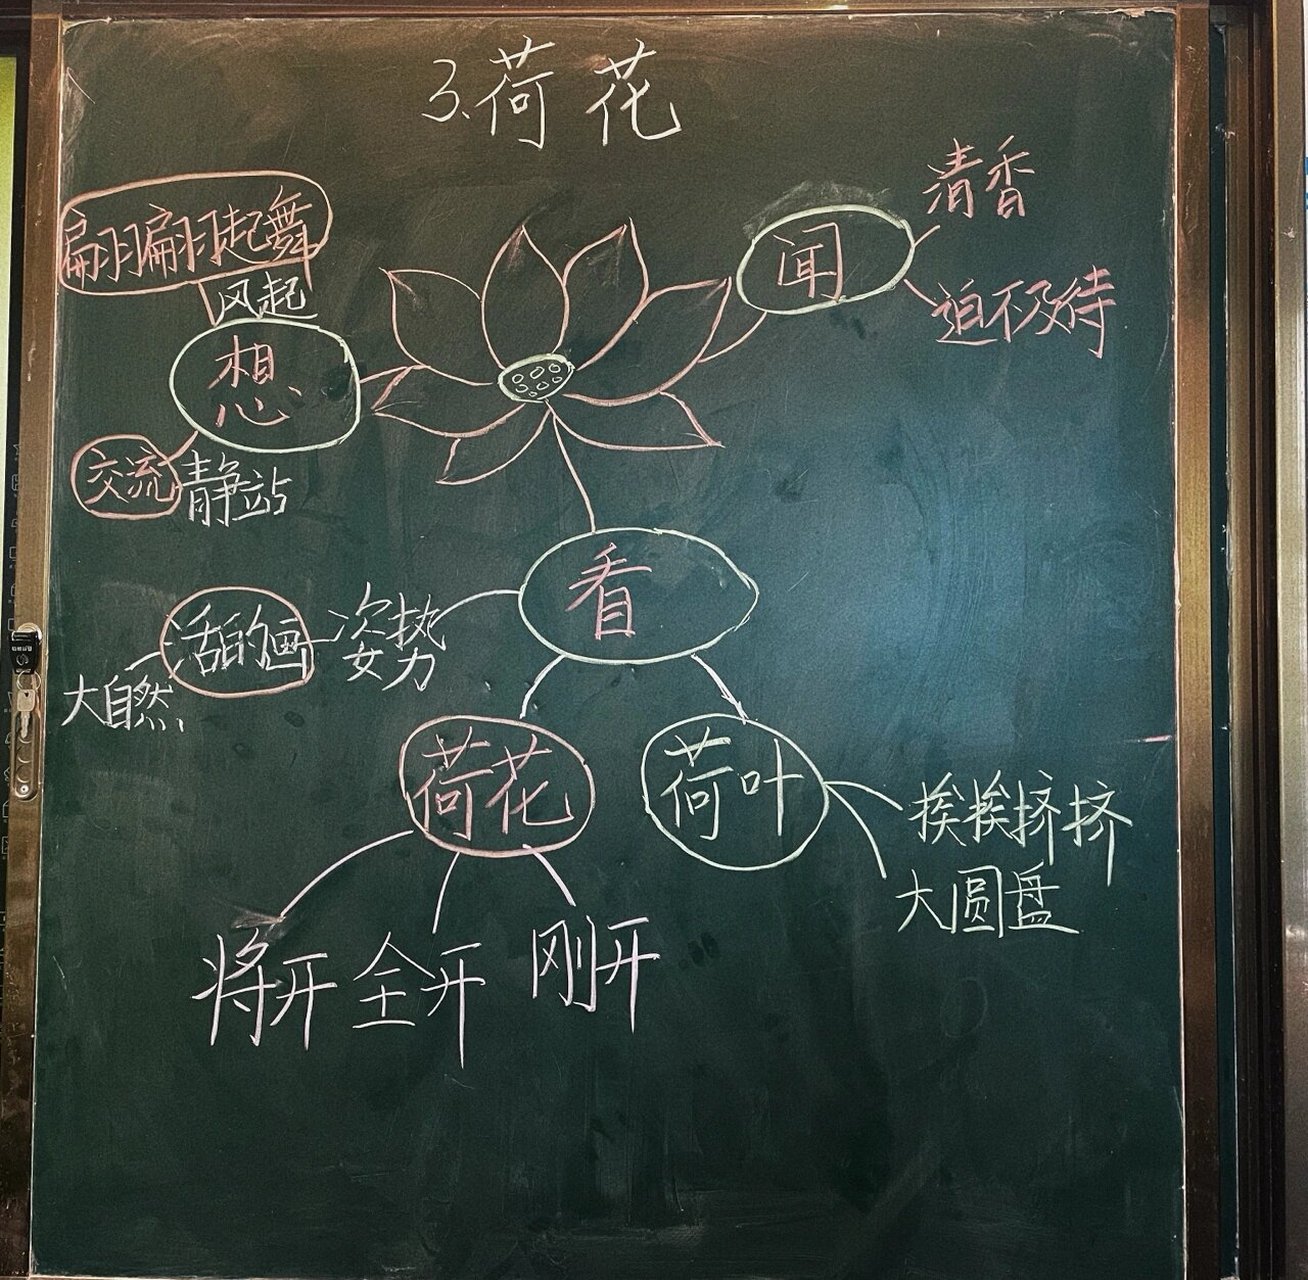 3.荷花
清香
闻
迫不及待
翩翩起舞
风起
想
交流
静站
看
姿势
活的画
大自然
荷花
荷叶
挨挨挤挤
大圆盘
将开
全开
刚开